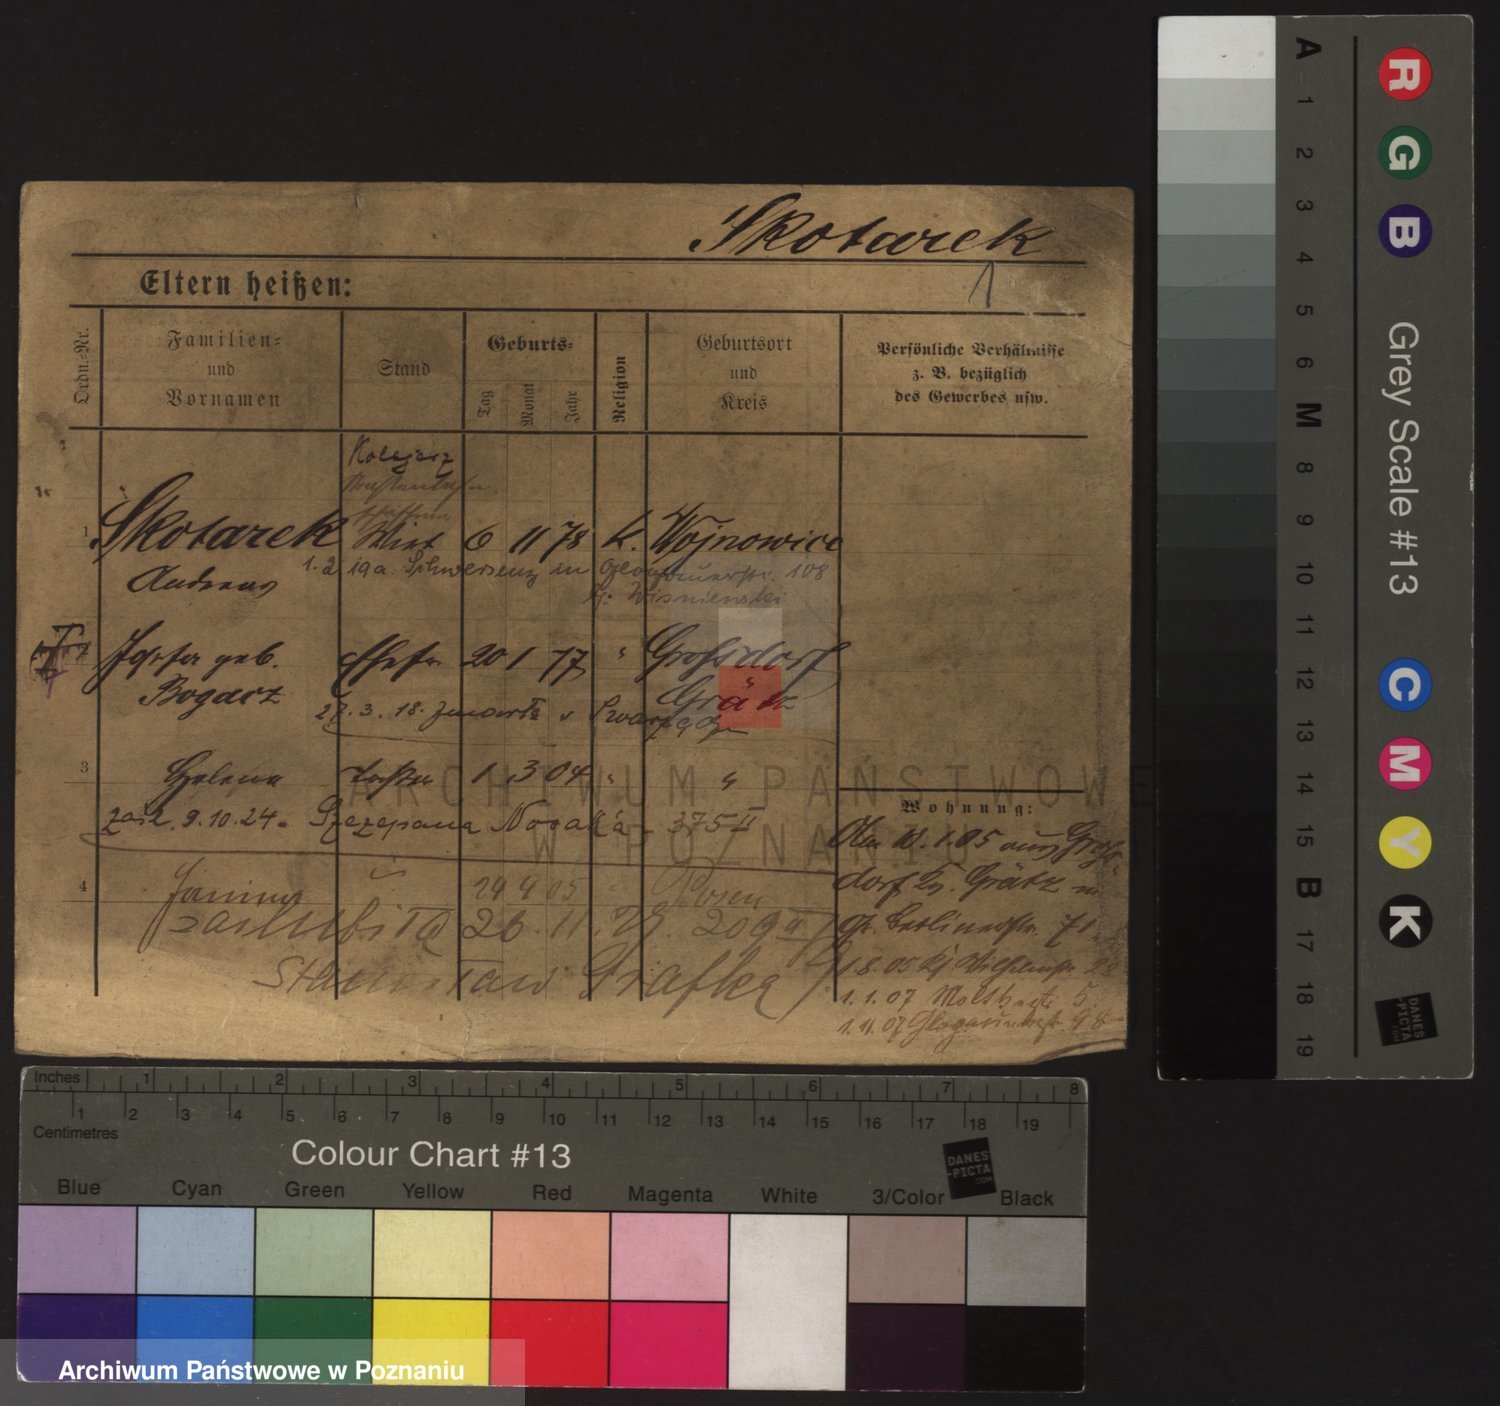 Skotarek
1
Eltern heißen:
Ordn.-Nr.
Familien-
und
Vornamen
Stand
Geburts-
Tag
Monat
Jahr
Religion
Geburtsort
und
Kreis
Persönliche Verhältnisse
z. B. bezüglich
des Gewerbes usw.
Kolejarz
1 Skotarek Wirt 6 11 78 k. Wojnowice
Andreas
1. 2. 19a. Schwersenz in Glogauerstr. 108
b. Wisniewski
Josefa geb. Ehefr. 20 1 77 " Grossdorf
Bogacz " Grätz
27. 3. 18. zmarła v Swarzędzu
3 Helena Tochter 1 3 04 " "
zaśl. 9.10.24. Szczepana Nowaka 375 II
4 Janina " 24 4 05 " Posen
zaślubiła 26. 11. 29. 209 II
Stanisław
Wohnung:
10.1.05 aus Gross-
dorf Kr. Grätz in
Gr. Berlinerstr. 71.
1.8.05
1.1.07 5.
1.11.07 Glogauerstr. 98
ARCHIWUM PAŃSTWOWE
W POZNANIU
Inches 1 2 3 4 5 6 7 8
1 2 3 4 5 6 7 8 9 10 11 12 13 14 15 16 17 18 19
Centimetres
Colour Chart #13
DANES
-PICTA
.COM
Blue Cyan Green Yellow Red Magenta White 3/Color Black
Archiwum Państwowe w Poznaniu
A 1 2 3 4 5 6 M 8 9 10 11 12 13 14 15 B 17 18 19
R G B
Grey Scale #13
C M Y K
DANES
-PICTA
.COM